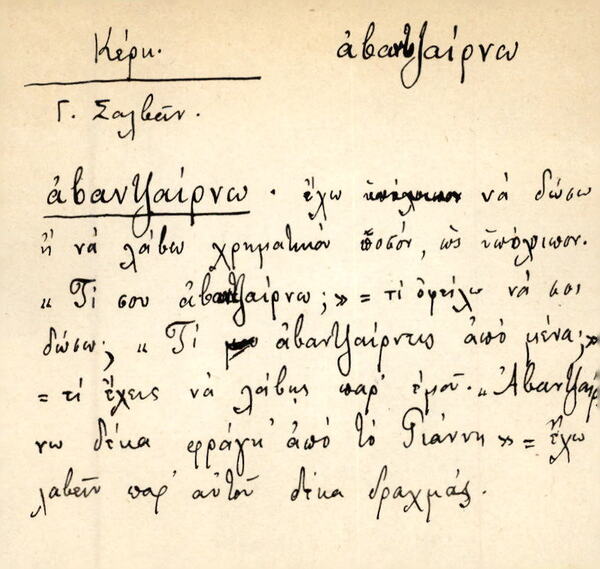 Κέρκ.
ἀβαντζαίρνω
Γ. Σαλβᾶν.
ἀβαντζαίρνω . ἔχω νὰ δώσω
ἢ νὰ λάβω χρηματικὸν ποσόν, ὡς ὑπόλοιπον.
« Τί σου ἀβαντζαίρνω ; » = τί ὀφείλω νὰ σοι
δώσω ; « Τί ἀβαντζαίρνεις ἀπὸ μένα ; »
= τί ἔχεις νὰ λάβῃς παρ' ἐμοῦ. « Ἀβαντζαίρ
νω δέκα φράγκ' ἀπὸ τὸ Γιάννη » = ἔχω
λαβεῖν παρ' αὐτοῦ δέκα δραχμάς.